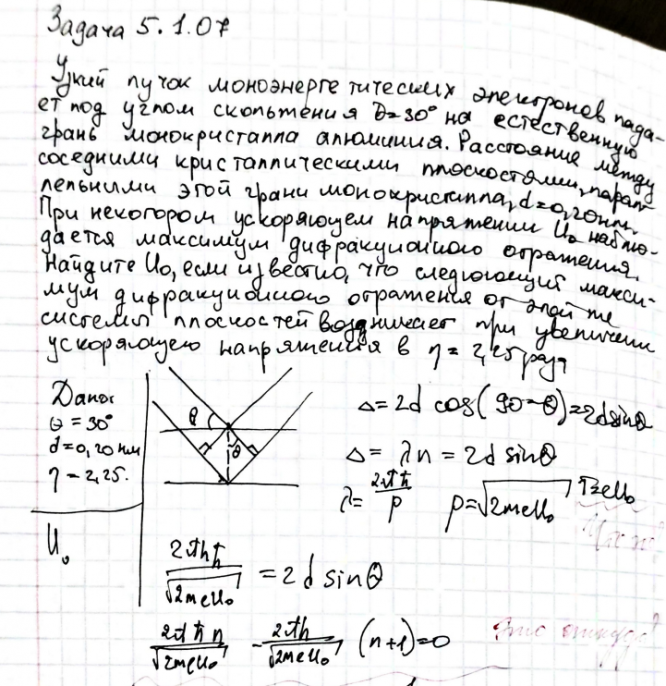 Задача 5.1.07
Узкий пучок моноэнергетических электронов пада-
ет под углом скольжения θ=30° на естественную
грань монокристалла алюминия. Расстояние между
соседними кристаллическими плоскостями, парал-
лельными этой грани монокристалла, d=0,20нм.
При некотором ускоряющем напряжении U₀ наблю-
дается максимум дифракционного отражения.
Найдите U₀, если известно, что следующий макси-
мум дифракционного отражения от этой же
системы плоскостей возникает при увеличении
ускоряющего напряжения в η = 2,25 раза
Дано:
θ = 30°
d=0,20 нм
η = 2,25.
U₀
θ
θ
Δ = 2d cos(90-θ)=2dsinθ
Δ = λn = 2d sinθ
λ = 2πħ/p p=√2meU₀ T=eU₀
2πħn/√2meU₀ = 2d sinθ
2πħn/√2meU₀ - 2πħ/√2meU₀ (n+1)=0